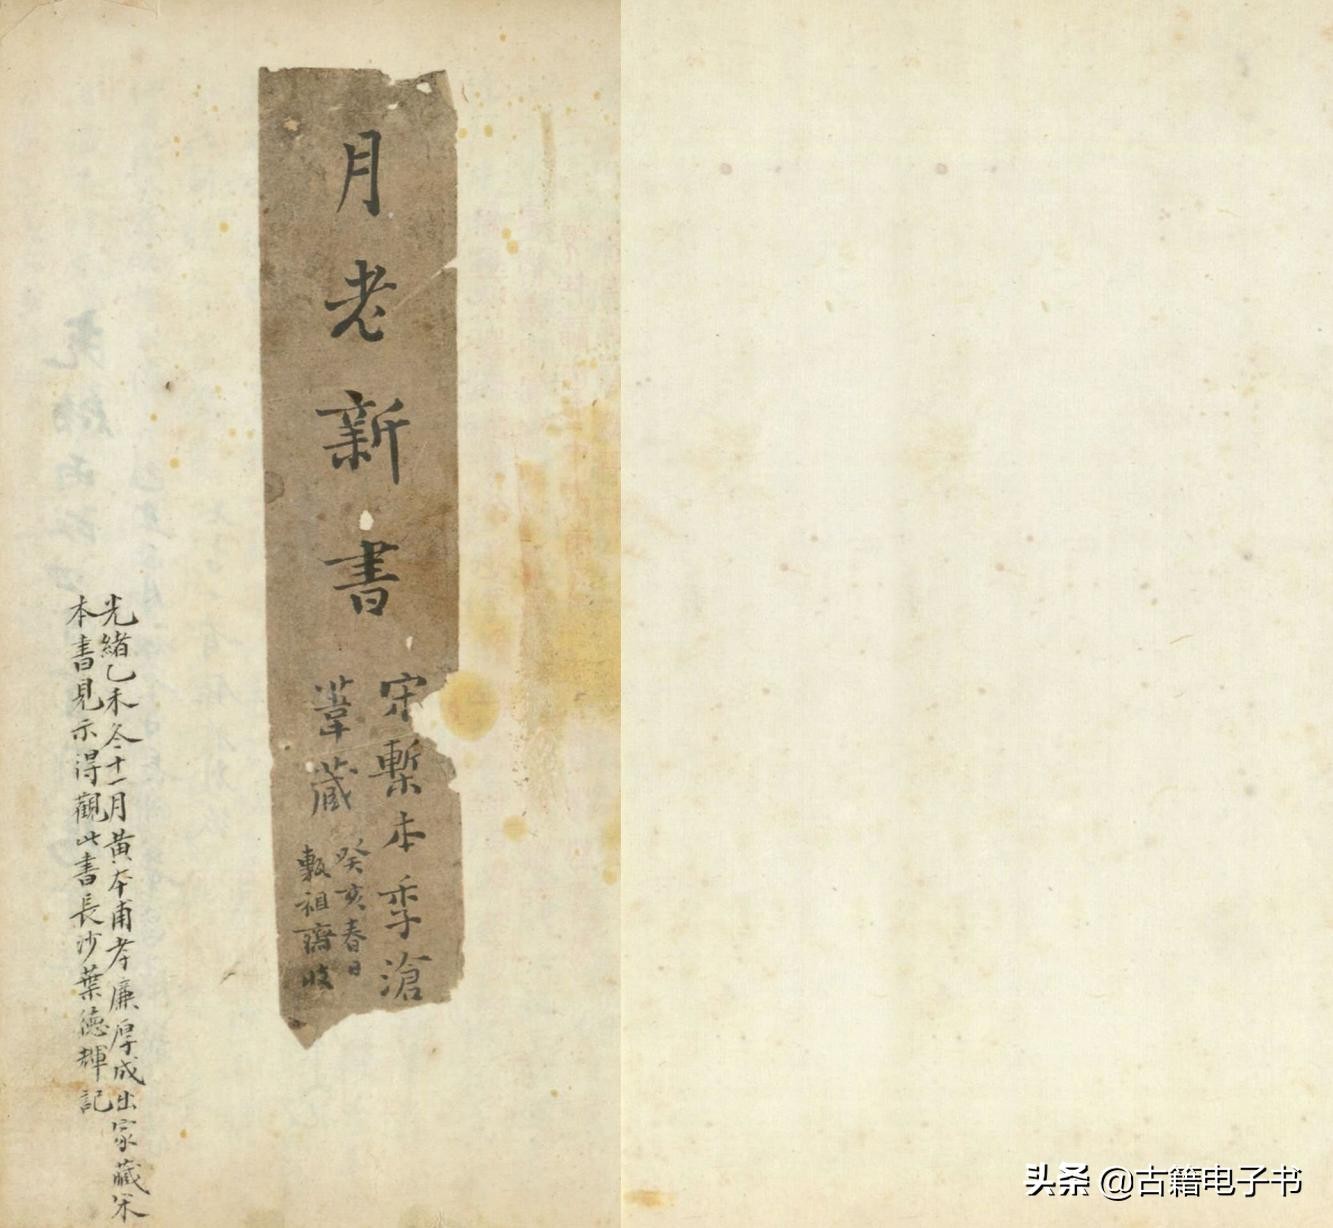 月老新書
宋槧本季滄
葦藏
癸亥春日
甎祖齋收
光緒乙未冬十一月黃本甫孝廉厚成出家藏宋
本書見示得觀此書長沙葉德輝記
头条 @古籍电子书